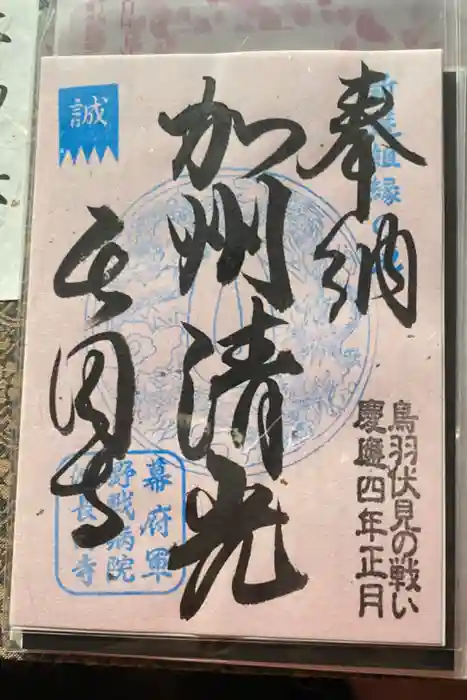 奉納
新選組縁の寺
加州清光
誠
長圓寺
鳥羽伏見の戦い
慶應四年正月
幕府軍
野戦病院